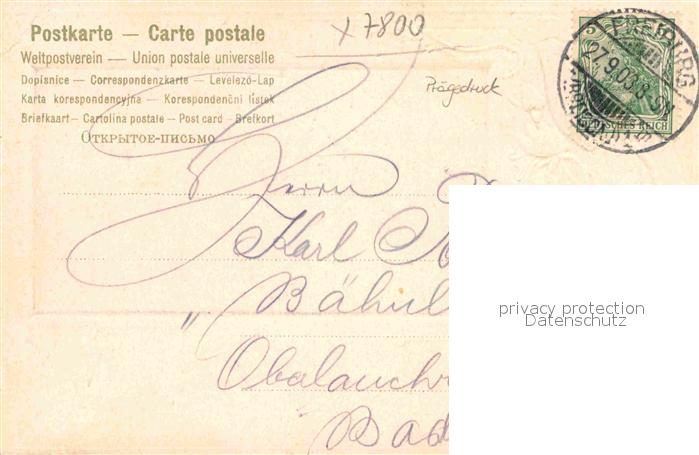 x 7800
Postkarte — Carte postale
Weltpostverein — Union postale universelle
Dopisnice — Correspondenzkarte — Levelező-Lap
Karta korespondencyjna — Korespondenční lístek
Briefkaart — Cartolina postale — Post card — Brefkort
ОТКРЫТОЕ-ПИСЬМО
Prägedruck
5
FREIBURG
27.9.03.8-9V
DEUTSCHES REICH
Herrn
Karl
Bähul
"Obalauchr
Bad
privacy protection
Datenschutz